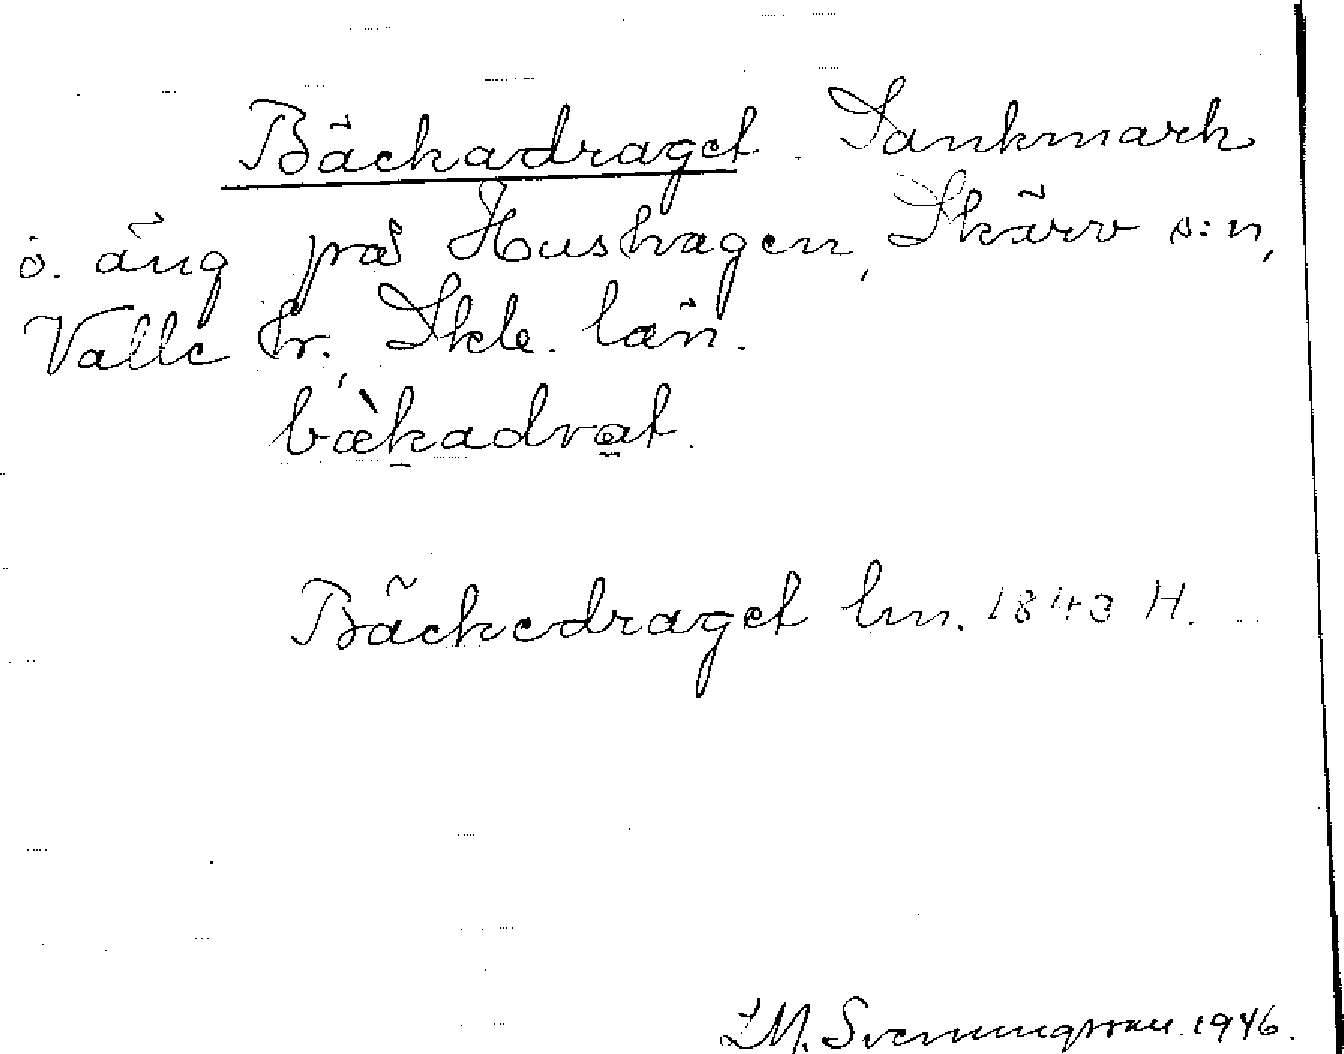 Bäckadraget. Sankmark
o. äng på Hushagen, Skärv s:n,
Valle hr., Skb. län.
bæ̀kadrat.
Bäckedraget lm. 1843 H.
I.M. Svenungsson 1946.